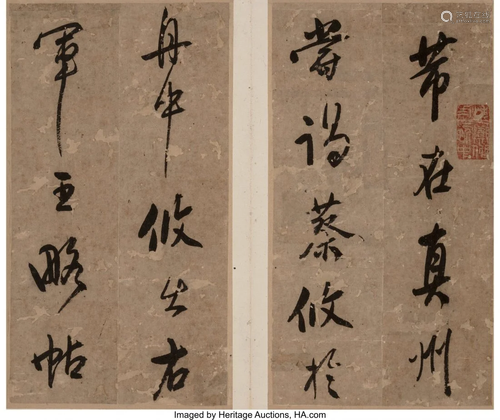 芾在真州
嘗謁蔡攸於
舟中攸出右
軍王略帖
Imaged by Heritage Auctions, HA.com